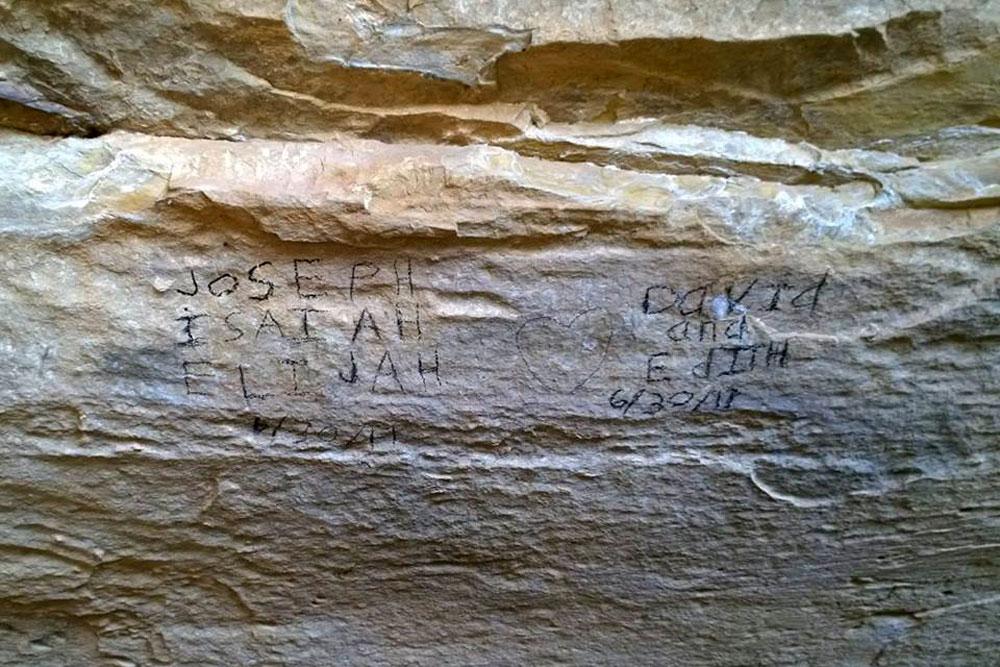 JOSEPH
ISAIAH
ELIJAH
6/30/11
David
and
EdITH
6/30/11